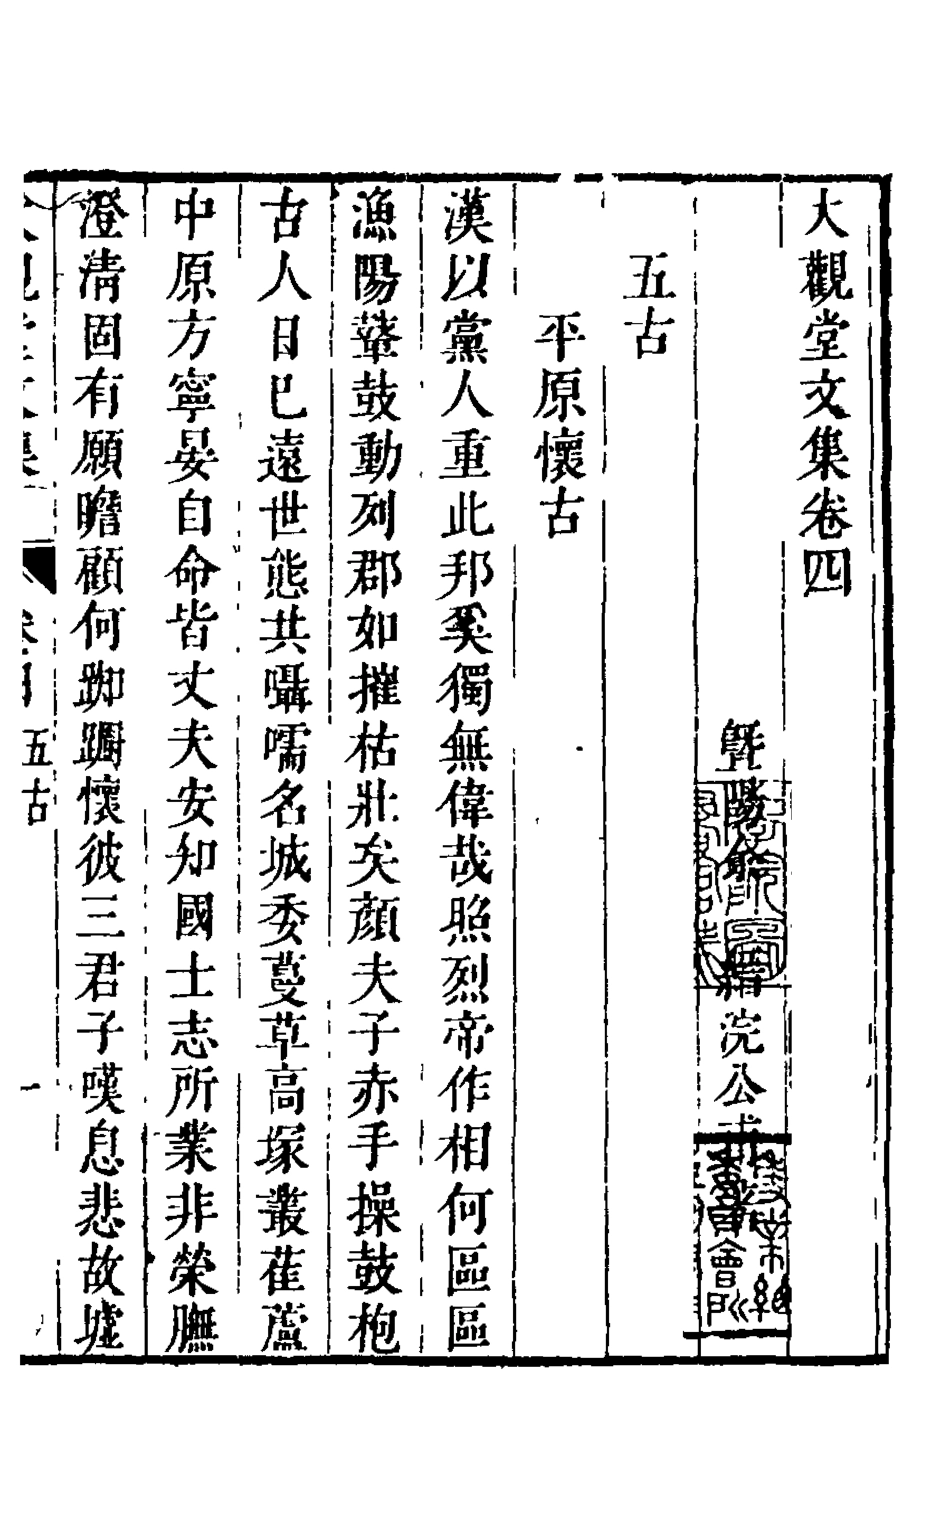 大觀堂文集卷四
暨陽余縉浣公甫
五古
平原懷古
漢以黨人重此邦奚獨無偉哉照烈帝作相何區區
漁陽鼙鼓動列郡如摧枯壯矣顔夫子赤手操鼓枹
古人日已遠世態共囁嚅名城委蔓草高塚叢萑蘆
中原方寧晏自命皆丈夫安知國士志所業非榮膴
澄清固有願瞻顧何踟躕懷彼三君子嘆息悲故墟
五古
一